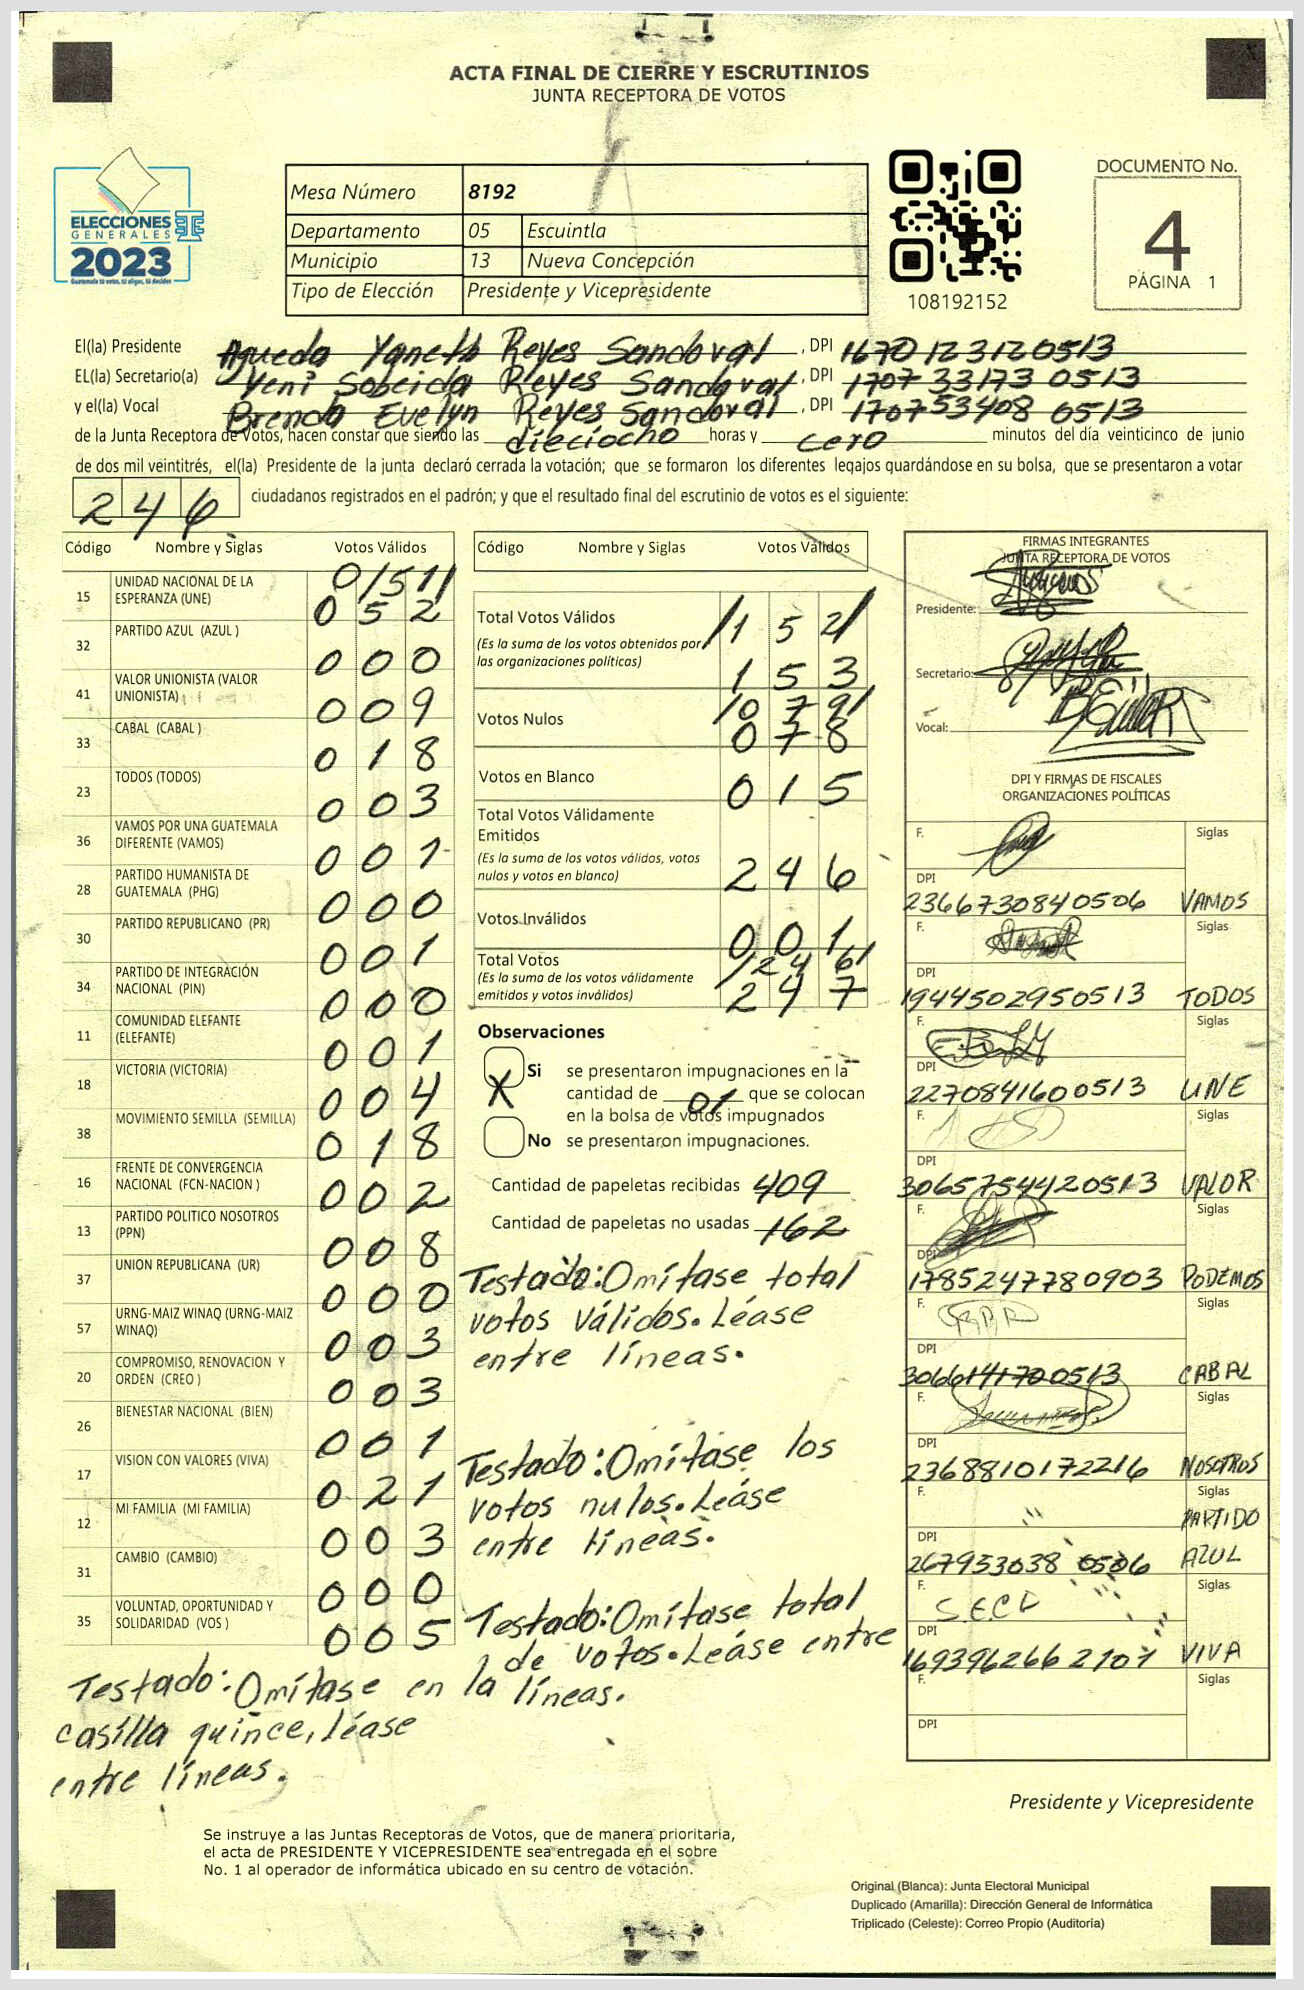 ACTA FINAL DE CIERRE Y ESCRUTINIOS
JUNTA RECEPTORA DE VOTOS
ELECCIONES
GENERALES
2023
Mesa Número 8192
Departamento 05 Escuintla
Municipio 13 Nueva Concepción
Tipo de Elección Presidente y Vicepresidente
108192152
DOCUMENTO No.
4
PÁGINA 1
El(la) Presidente Agueda Yaneth Reyes Sandoval , DPI 1670 12312 0513
EL(la) Secretario(a) Yeni Sobeida Reyes Sandoval , DPI 1707 33173 0513
y el(la) Vocal Brenda Evelyn Reyes Sandoval , DPI 1707 53408 0513
de la Junta Receptora de Votos, hacen constar que siendo las dieciocho horas y cero minutos del día veinticinco de junio
de dos mil veintitrés, el(la) Presidente de la junta declaró cerrada la votación; que se formaron los diferentes legajos quardándose en su bolsa, que se presentaron a votar
246 ciudadanos registrados en el padrón; y que el resultado final del escrutinio de votos es el siguiente:
Código Nombre y Siglas Votos Válidos
15 UNIDAD NACIONAL DE LA ESPERANZA (UNE) 0/51/ 052
32 PARTIDO AZUL (AZUL ) 000
41 VALOR UNIONISTA (VALOR UNIONISTA) 009
33 CABAL (CABAL ) 018
23 TODOS (TODOS) 003
36 VAMOS POR UNA GUATEMALA DIFERENTE (VAMOS) 001
28 PARTIDO HUMANISTA DE GUATEMALA (PHG) 000
30 PARTIDO REPUBLICANO (PR) 001
34 PARTIDO DE INTEGRACIÓN NACIONAL (PIN) 000
11 COMUNIDAD ELEFANTE (ELEFANTE) 001
18 VICTORIA (VICTORIA) 004
38 MOVIMIENTO SEMILLA (SEMILLA) 018
16 FRENTE DE CONVERGENCIA NACIONAL (FCN-NACION ) 002
13 PARTIDO POLITICO NOSOTROS (PPN) 008
37 UNION REPUBLICANA (UR) 000
57 URNG-MAIZ WINAQ (URNG-MAIZ WINAQ) 003
20 COMPROMISO, RENOVACION Y ORDEN (CREO ) 003
26 BIENESTAR NACIONAL (BIEN) 001
17 VISION CON VALORES (VIVA) 021
12 MI FAMILIA (MI FAMILIA) 003
31 CAMBIO (CAMBIO) 000
35 VOLUNTAD, OPORTUNIDAD Y SOLIDARIDAD (VOS ) 005
Testado: Omítase en la
casilla quince, léase
entre líneas.
Código Nombre y Siglas Votos Válidos
Total Votos Válidos /152/
(Es la suma de los votos obtenidos por
las organizaciones políticas) 153
Votos Nulos /079/ 078
Votos en Blanco 015
Total Votos Válidamente
Emitidos
(Es la suma de los votos válidos, votos
nulos y votos en blanco) 246
Votos Inválidos 001
Total Votos /246/
(Es la suma de los votos válidamente
emitidos y votos inválidos) 247
Observaciones
X Si se presentaron impugnaciones en la
cantidad de 01 que se colocan
en la bolsa de votos impugnados
No se presentaron impugnaciones.
Cantidad de papeletas recibidas 409
Cantidad de papeletas no usadas 162
Testado: Omítase total
votos válidos. Léase
entre líneas.
Testado: Omítase los
votos nulos. Léase
entre líneas.
Testado: Omítase total
de votos. Léase entre
líneas.
FIRMAS INTEGRANTES
JUNTA RECEPTORA DE VOTOS
Presidente:
Secretario:
Vocal:
DPI Y FIRMAS DE FISCALES
ORGANIZACIONES POLÍTICAS
F. Siglas
DPI
2366730840506 VAMOS
F. Siglas
DPI
1944502950513 TODOS
F. Siglas
DPI
2270841600513 UNE
F. Siglas
DPI
3065754420513 VALOR
F. Siglas
DPI
1785247780903 PODEMOS
F. Siglas
DPI
3066141700513 CABAL
F. Siglas
DPI
2368810172216 NOSOTROS
F. Siglas
PARTIDO
DPI
267953038 0506 AZUL
F. Siglas
DPI
169396266 2107 VIVA
F. Siglas
DPI
Presidente y Vicepresidente
Se instruye a las Juntas Receptoras de Votos, que de manera prioritaria,
el acta de PRESIDENTE Y VICEPRESIDENTE sea entregada en el sobre
No. 1 al operador de informática ubicado en su centro de votación.
Original (Blanca): Junta Electoral Municipal
Duplicado (Amarilla): Dirección General de Informática
Triplicado (Celeste): Correo Propio (Auditoría)